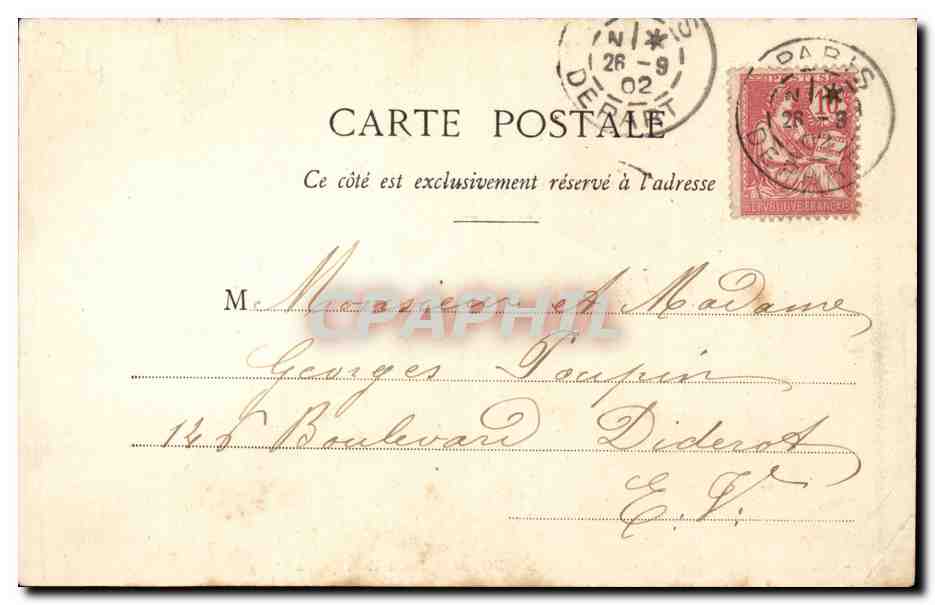 N *
26 - 9
02
DEPART
PARIS
POSTES
10
26 - 9
02
REPUBLIQUE FRANCAISE
CARTE POSTALE
Ce côté est exclusivement réservé à l'adresse
M Monsieur et Madame
CPAPHIL
Georges Poupin
Boulevard Diderot
E.V.